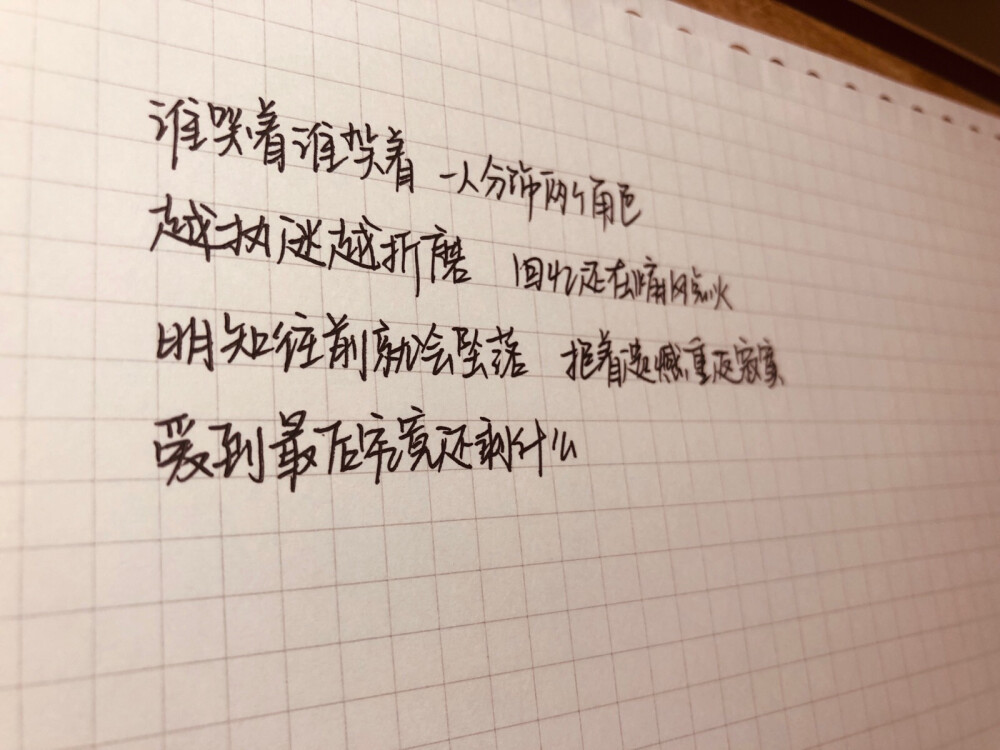 谁哭着谁笑着 一人分饰两个角色
越执迷越折磨 回忆还在痛风点火
明知往前就会坠落 抱着遗憾重返寂寞
爱到最后究竟还剩什么